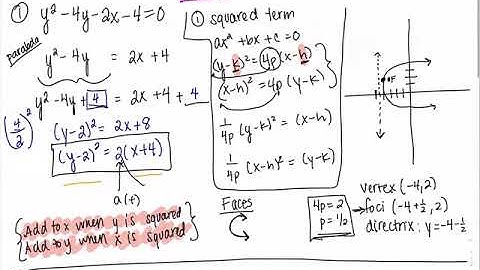 ① y² - 4y - 2x - 4 = 0
parabola
y² - 4y = 2x + 4
y² - 4y + 4 = 2x + 4 + 4
(4/2)²
(y-2)² = 2x + 8
(y-2)² = 2(x+4)
a (+)
Add to x when y is squared
Add to y when x is squared
① squared term
ax² + bx + c = 0
(y-k)² = 4p(x-h)
(x-h)² = 4p(y-k)
1/4p (y-k)² = (x-h)
1/4p (x-h)² = (y-k)
Faces
4p = 2
p = 1/2
F
vertex (-4, 2)
foci (-4 + 1/2, 2)
directrix: y = -4 - 1/2